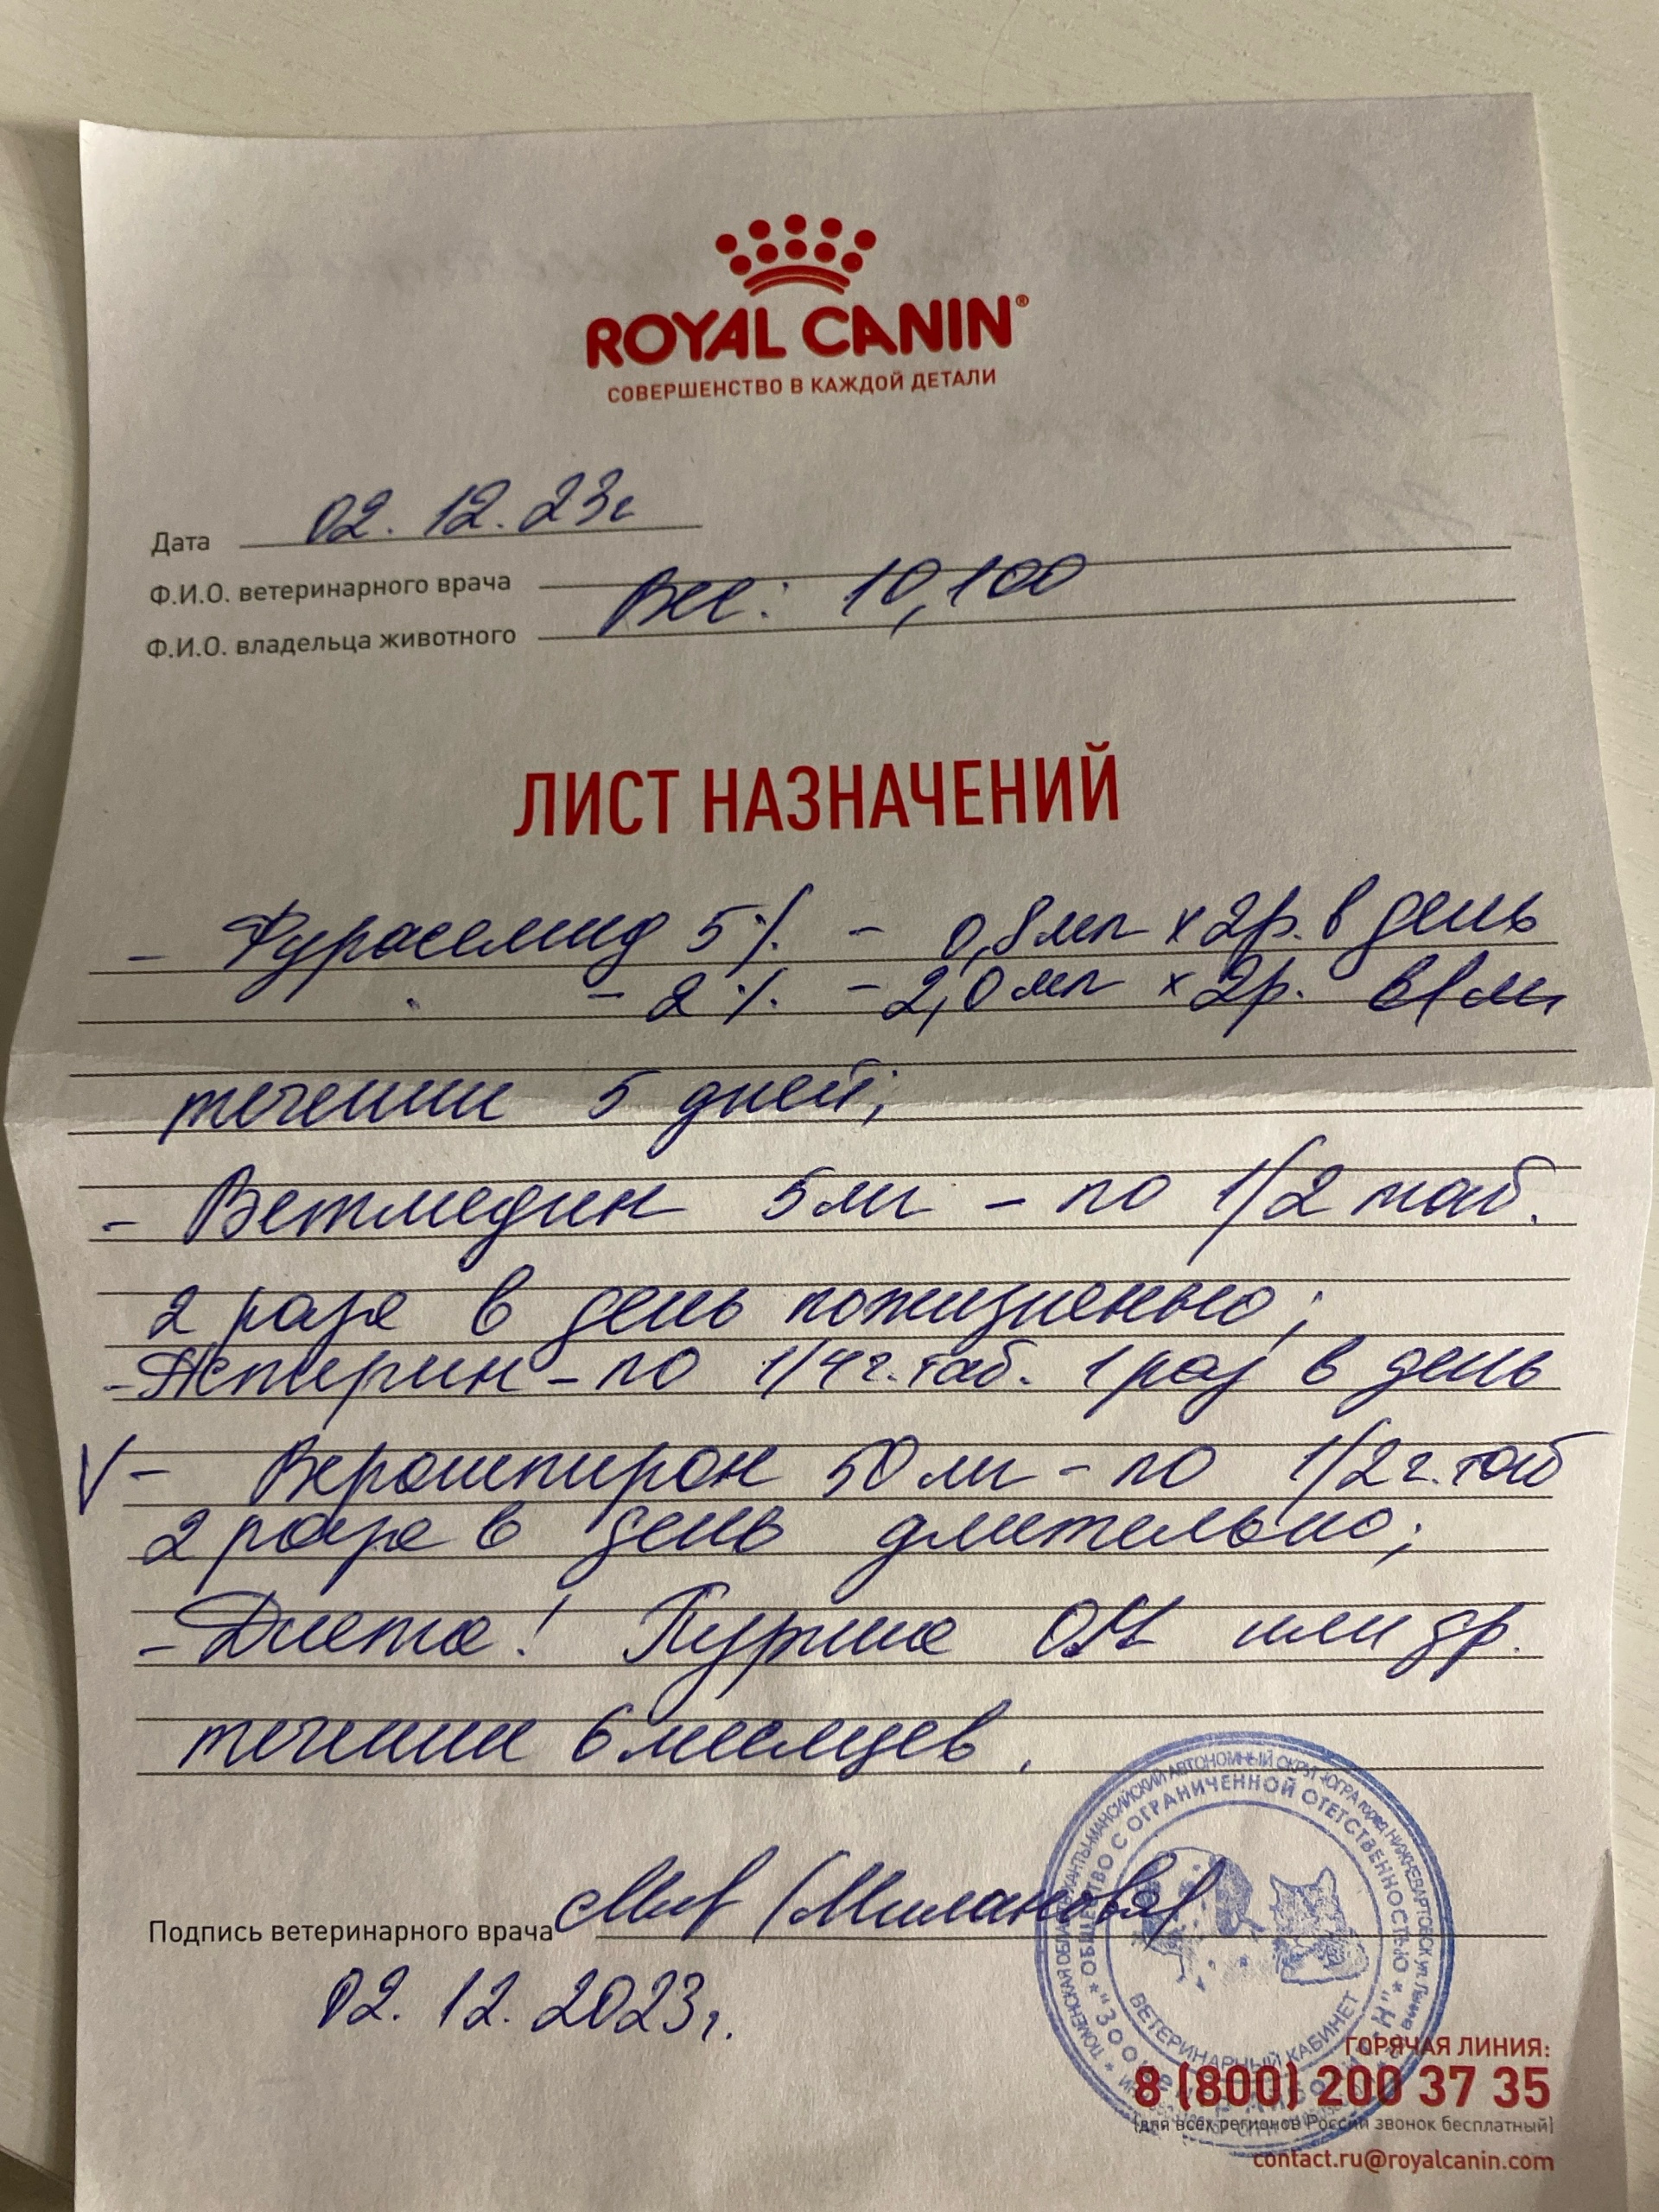 ROYAL CANIN®
СОВЕРШЕНСТВО В КАЖДОЙ ДЕТАЛИ
Дата 02.12.23г
Ф.И.О. ветеринарного врача
Вес: 10,100
Ф.И.О. владельца животного
ЛИСТ НАЗНАЧЕНИЙ
- Фуросемид 5% - 0,8мл х 2р. в день
- 2% - 2,0мл х 2р. в/м
течении 5 дней;
- Ветмедин 5мг - по 1/2 таб.
2 раза в день пожизненно;
- Аспирин - по 1/4 г. таб. 1 раз в день
V - Верошпирон 50мг - по 1/2 г. таб
2 раза в день длительно;
- Диета! Пурина ОМ или др.
течении 6 месяцев.
Подпись ветеринарного врача (Миланова)
02.12.2023г.
ТЮМЕНСКАЯ ХАНТЫ-МАНСИЙСКИЙ АВТОНОМНЫЙ ОКРУГ-ЮГРА город НИЖНЕВАРТОВСК ул.
* ОБЩЕСТВО С ОГРАНИЧЕННОЙ ОТВЕТСТВЕННОСТЬЮ *
ВЕТЕРИНАРНЫЙ КАБИНЕТ
ГОРЯЧАЯ ЛИНИЯ:
8 (800) 200 37 35
(для всех регионов России звонок бесплатный)
contact.ru@royalcanin.com